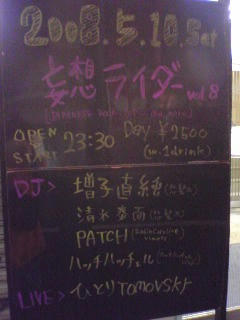 2008.5.10.Sat
妄想ライダー vol.8
OPEN START 23:30 Day ¥2500
(w.1drink)
DJ> 増子直純
清水番面
PATCH
ハッチハッチェル
LIVE> ひとりTOMOVSKY